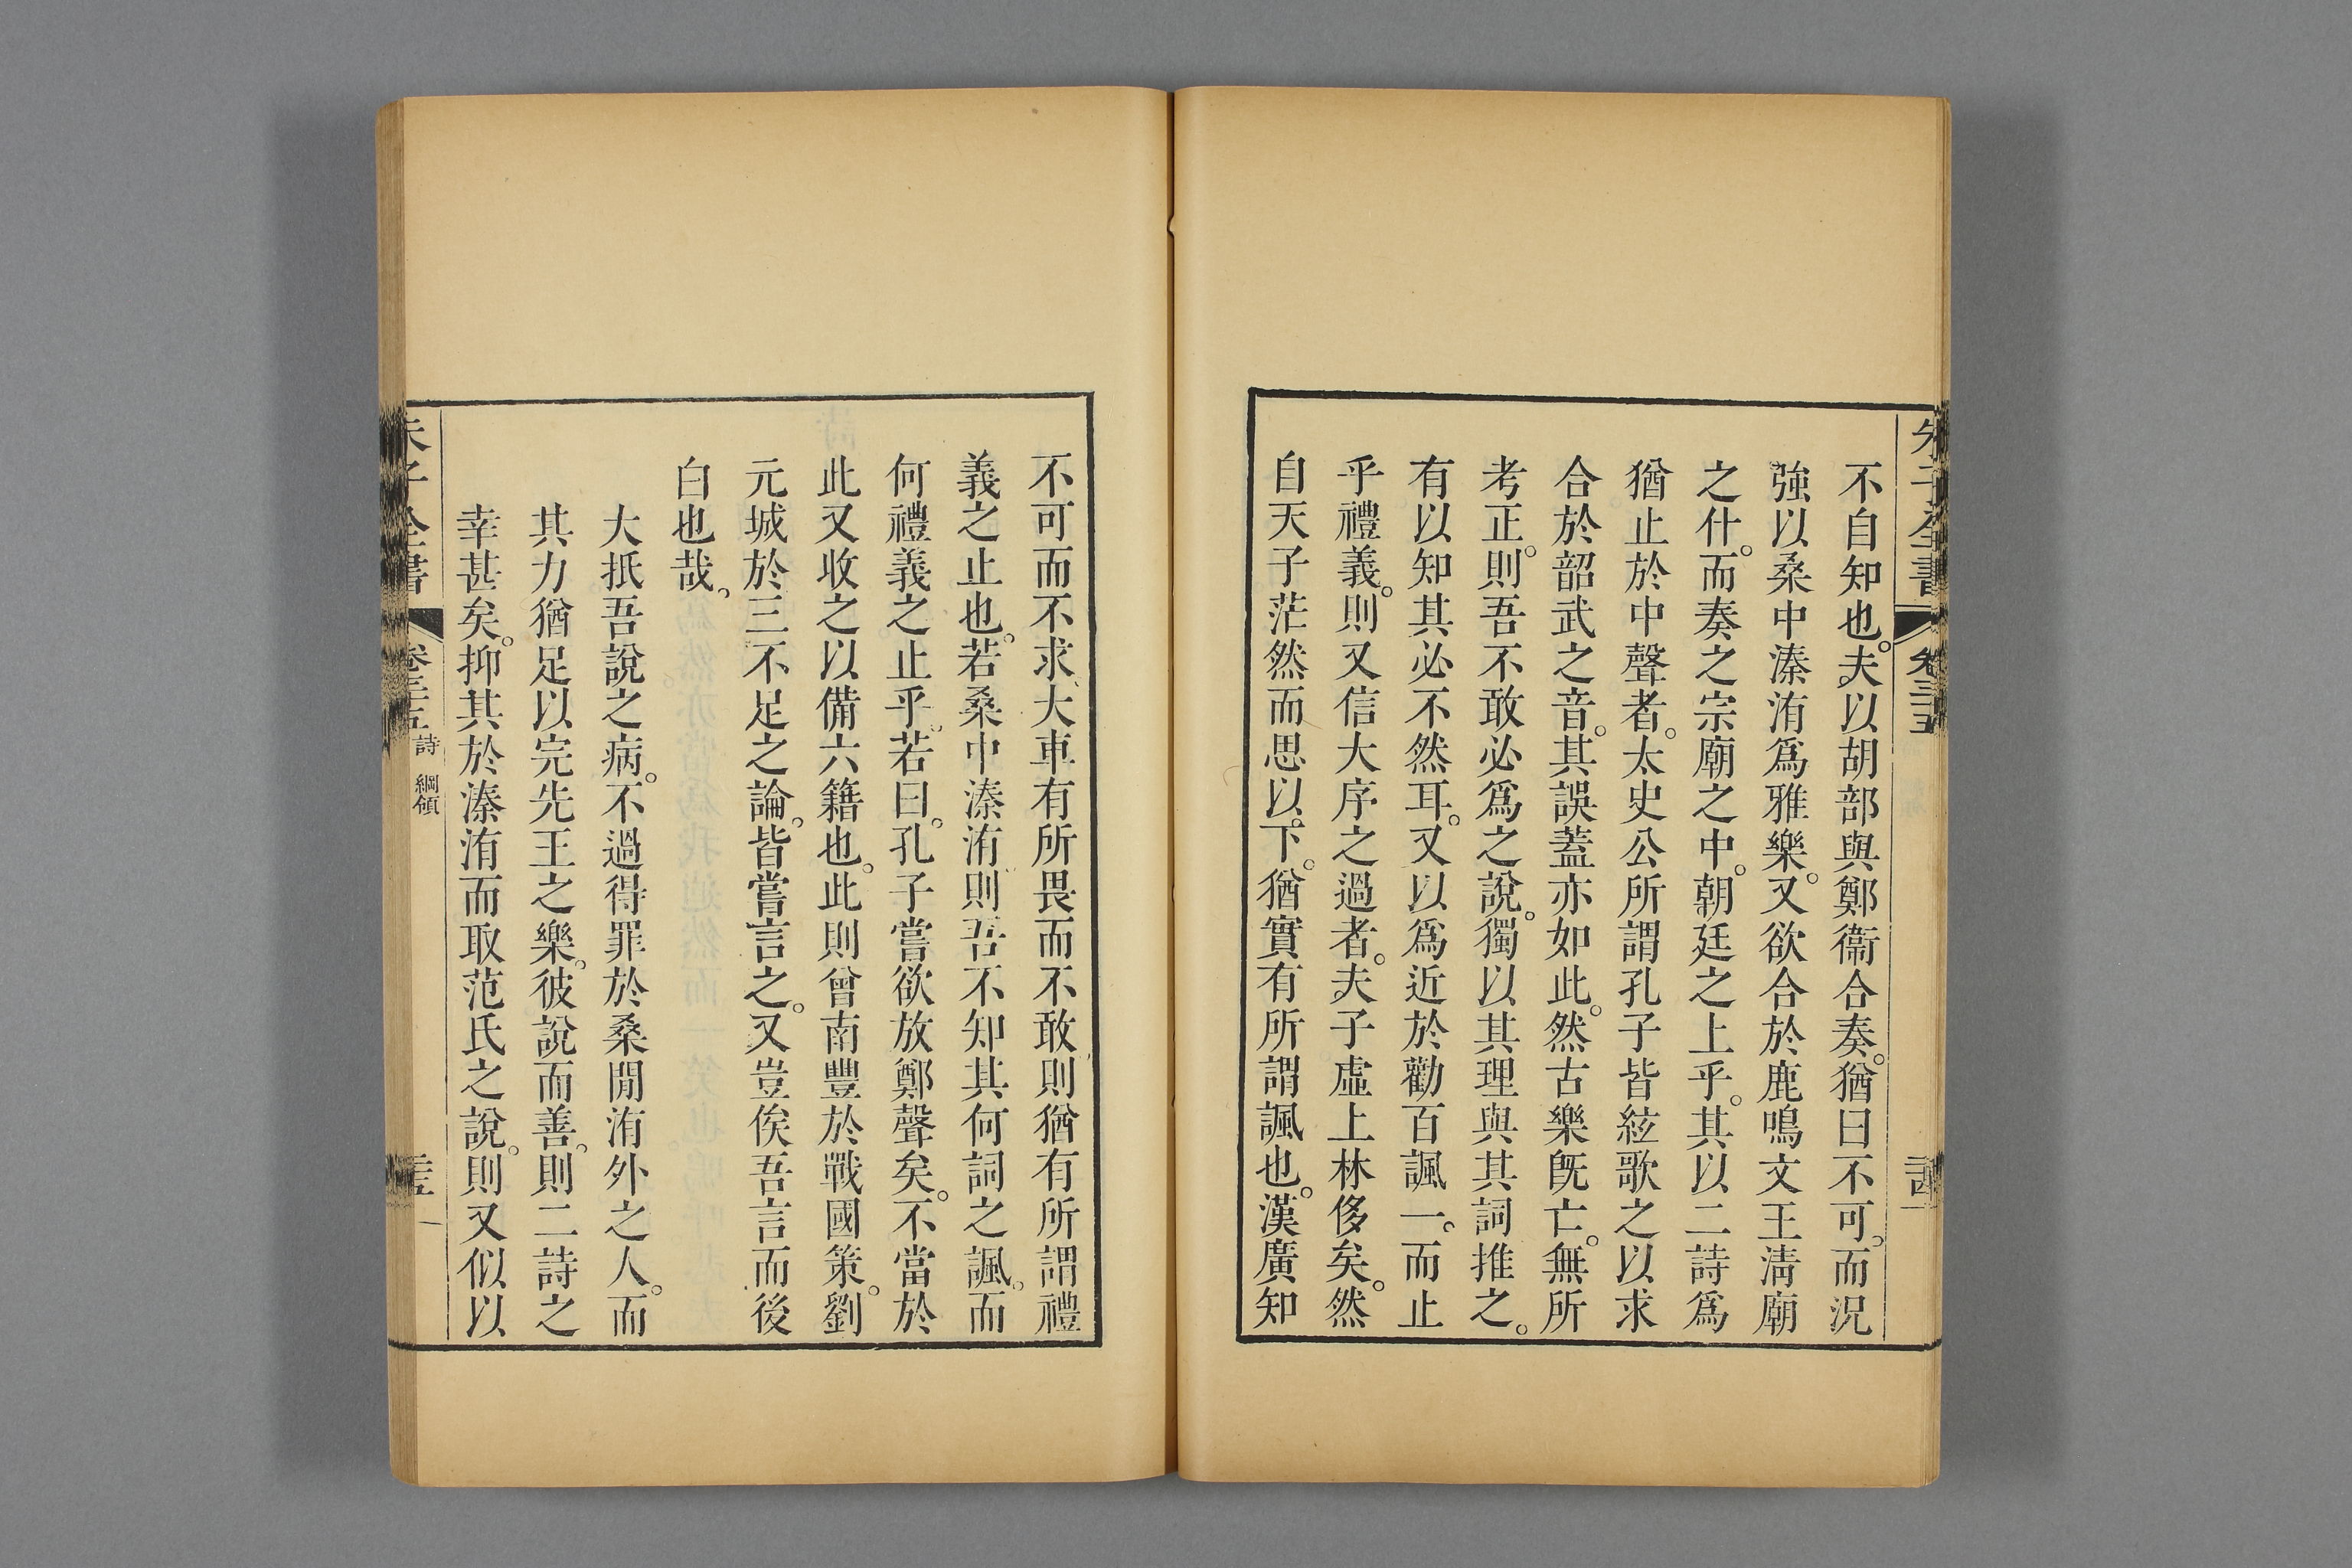 朱子全書 卷三十五
不自知也。夫以胡部與鄭衞合奏。猶曰不可。而況
強以桑中溱洧爲雅樂。又欲合於鹿鳴文王淸廟
之什。而奏之宗廟之中。朝廷之上乎。其以二詩爲
猶止於中聲者。太史公所謂孔子皆絃歌之以求
合於韶武之音。其誤蓋亦如此。然古樂旣亡。無所
考正。則吾不敢必爲之說。獨以其理與其詞推之。
有以知其必不然耳。又以爲近於勸百諷一。而止
乎禮義。則又信大序之過者。夫子虛上林侈矣。然
自天子茫然而思以下。猶實有所謂諷也。漢廣知
不可而不求、大車有所畏而不敢則猶有所謂禮
義之止也。若桑中溱洧、則吾不知其何詞之諷。而
何禮義之止乎。若曰。孔子嘗欲放鄭聲矣。不當於
此又收之以備六籍也。此則曾南豐於戰國策。劉
元城於三不足之論。皆嘗言之。又豈俟吾言而後
白也哉。
大抵吾說之病。不過得罪於桑間洧外之人。而
其力猶足以完先王之樂。彼說而善。則二詩之
幸甚矣。抑其於溱洧而取范氏之說。則又似以
朱子全書 卷三十五 詩 綱領